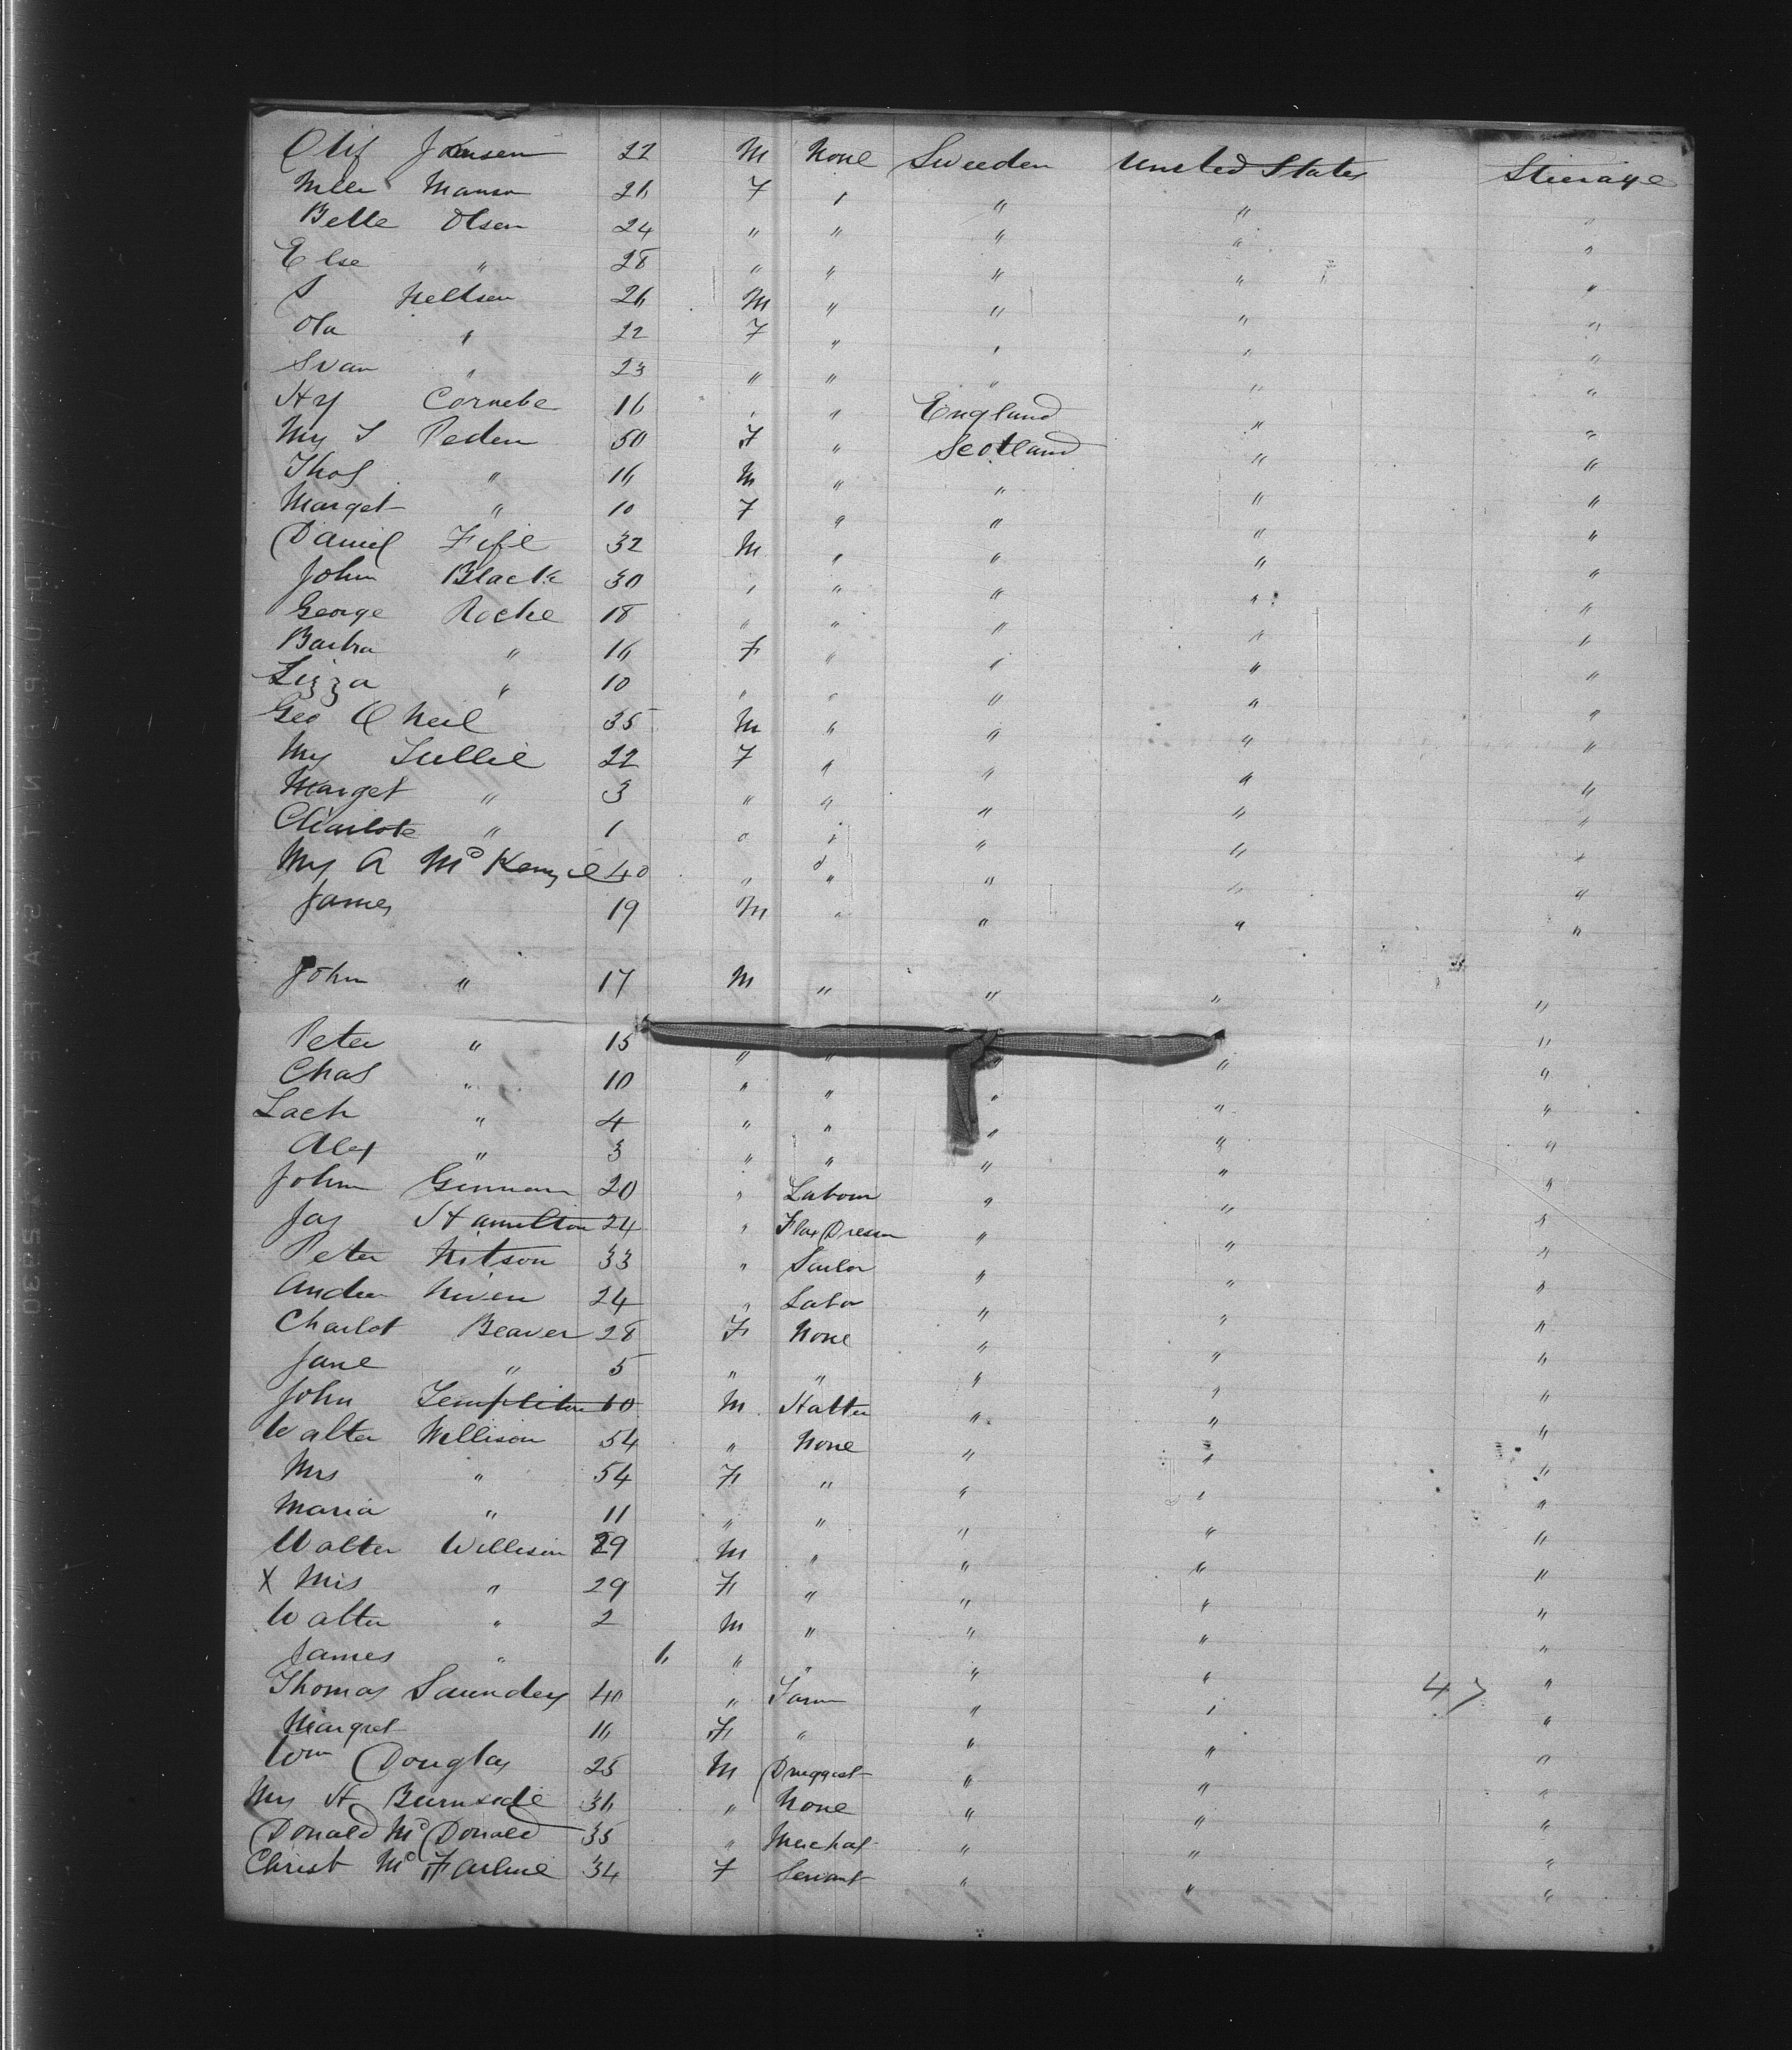 Olif Jonsen 22 M None Sweeden United States Stierage
Nelle Manson 26 F " " " "
Belle Olsen 24 " " " " "
Else " 28 " " " " "
S Neilson 26 M " " " "
Ola " 22 F " " " "
Svan " 23 " " " " "
Hy Cornebe 16 " " England " "
Mrs S Peden 50 F " Scotland " "
Thos " 16 M " " " "
Marget " 10 F " " " "
Daniel Fife 32 M " " " "
John Black 30 " " " " "
George Roche 18 " " " " "
Barbra " 16 F " " " "
Lizza " 10 " " " " "
Geo O Neil 35 M " " " "
Mrs Tullie 22 F " " " "
Marget " 3 " " " " "
Charlote " 1 " " " " "
Mrs A McKenzie 40 " " " " "
James 19 M " " " "
John " 17 M " " " "
Peter " 15 " " " " "
Chas " 10 " " " " "
Lach " 4 " " " " "
Alex " 3 " " " " "
John Gunnan 20 " Labour " " "
Jas Hamilton 24 " Flax Dresser " " "
Peter Nitson 33 " Sailor " " "
Andrew Niven 24 " Labor " " "
Charlot Beaver 28 F None " " "
Jane " 5 " " " " "
John Templeton 60 M Hatter " " "
Walter Willison 54 " None " " "
Mrs " 54 F " " " "
Maria " 11 " " " " "
Walter Willison 29 M " " " "
X Mrs " 29 F " " " "
Walter " 2 M " " " "
James " 6 " " " " "
Thomas Saunders 40 " Farm " " 47 "
Margret 16 F " " " "
Wm Douglas 25 M Druggest " " "
Mrs H Burnside 36 " None " " "
Donald McDonald 35 " Merchat " " "
Christ McFarline 34 F Servant " " "